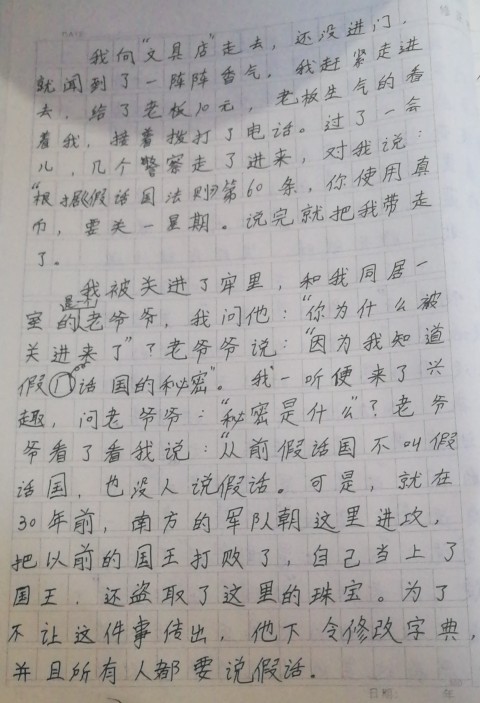 我向“文具店”走去，还没进门，
就闻到了一阵阵香气。我赶紧走进
去，给了老板10元，老板生气的看
着我，接着拨打了电话。过了一会
儿，几个警察走了进来，对我说：
“根据《假话国法则》第60条，你使用真
币，要关一星期。说完就把我带走
了。
我被关进了牢里，和我同居一
室的是一个老爷爷，我问他：“你为什么被
关进来了”？老爷爷说：“因为我知道
假话国的秘密”。我一听便来了兴
趣，问老爷爷：“秘密是什么”？老爷
爷看了看我说：“从前假话国不叫假
话国，也没人说假话。可是，就在
30年前，南方的军队朝这里进攻，
把以前的国王打败了，自己当上了
国王，还盗取了这里的珠宝。为了
不让这件事传出，他下令修改字典，
并且所有人都要说假话。
日期： 年